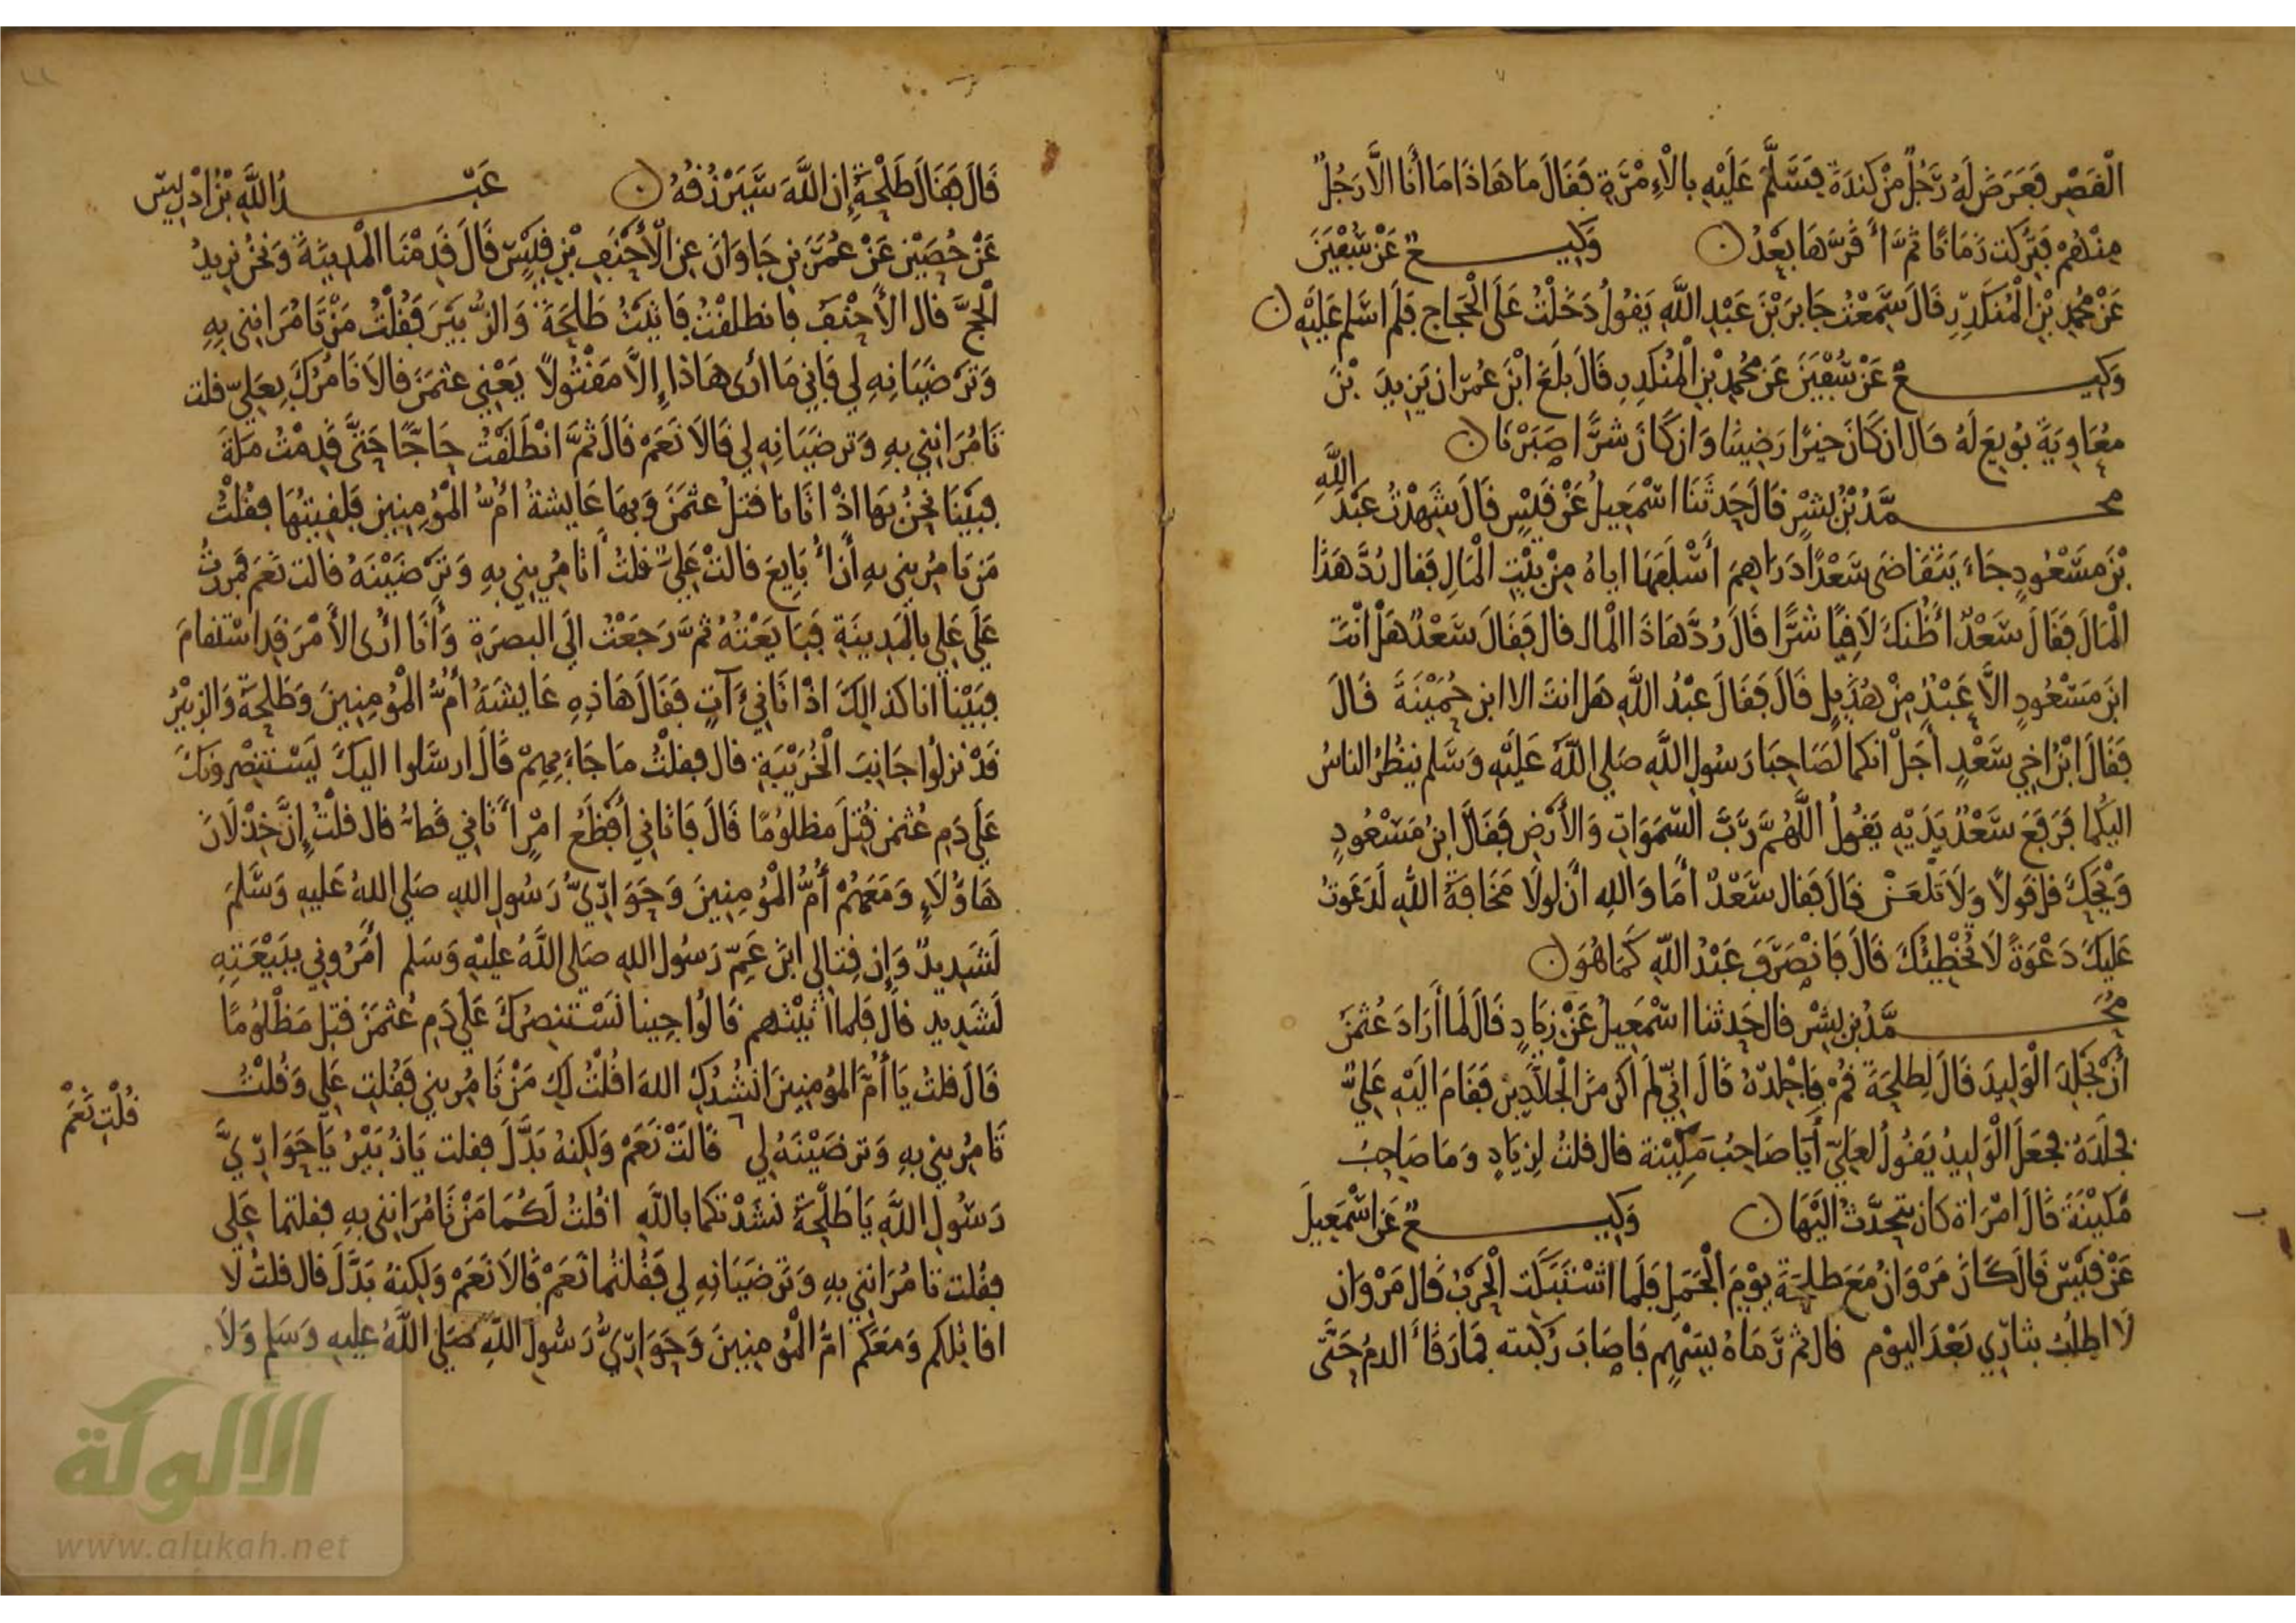 الْقَصْرِ فَعَرَضَ لَهُ رَجُلٌ مِنْ كِنْدَةَ فَسَلَّمَ عَلَيْهِ بِالْإِمْرَةِ فَقَالَ مَا هَاذَا مَا أَنَا إِلَّا رَجُلٌ
مِنْهُمْ فَتُرِكَتْ زَمَانًا ثُمَّ أَقَرَّهَا بَعْدُ ن وَكِيــــعٌ عَنْ سُفْيَنَ
عَنْ مُحَمَّدِ بْنِ الْمُنْكَدِرِ قَالَ سَمِعْتُ جَابِرَ بْنَ عَبْدِ اللَّهِ يَقُولُ دَخَلْتُ عَلَى الْحَجَّاجِ فَلَمْ أُسَلِّمْ عَلَيْهِ ن
وَكِيــــعٌ عَنْ سُفْيَنَ عَنْ مُحَمَّدِ بْنِ الْمُنْكَدِرِ قَالَ بَلَغَ ابْنَ عُمَرَ ان يَزِيدَ بْنَ
مُعَاوِيَةَ بُويِعَ لَهُ قَالَ ان كَانَ خَيْرًا رَضِينَا وَان كَانَ شَرًّا صَبَرْنَا ن
مُحــــمَّدُ بْنُ بِشْرٍ قَالَ حَدَّثَنَا اسْمَعِيلُ عَنْ قَيْسٍ قَالَ شَهِدْتُ عَبْدَ اللَّهِ
بْنَ مَسْعُودٍ جَاءَ يَتَقَاضَى سَعْدًا دَرَاهِمَ أَسْلَفَهَا اياهُ مِنْ بَيْتِ الْمَالِ فَقَالَ رُدَّ هَذَا
الْمَالَ فَقَالَ سَعْدٌ أَظُنُّكَ لَاقِيًا شَرًّا قَالَ رُدَّ هَاذَا الْمَالَ قَالَ فَقَالَ سَعْدٌ هَلْ أَنْتَ
ابْنَ مَسْعُودٍ الَّا عَبْدٌ مِنْ هُذَيْلٍ قَالَ فَقَالَ عَبْدُ اللَّهِ هَلْ انتَ الا ابن حُمَيْنَةَ قَالَ
فَقَالَ ابْنُ اخِي سَعْدٍ أَجَلْ انكما لَصَاحِبَا رَسُولِ اللَّهِ صَلى اللَّهُ عَلَيْهِ وَسَلم يَنْظُرُ الناسُ
اليكُمَا فَرَفَعَ سَعْدٌ يَدَيْهِ يَقُولُ اللَّهُمَّ رَبَّ السَّمَوَاتِ وَالأَرْضِ فَقَالَ ابْنُ مَسْعُودٍ
وَيْحَكَ قل قَولًا وَلَا تَلْعَنْ قَالَ فَقَالَ سَعْدٌ أَمَا وَاللهِ أَن لولَا مَخَافَةُ اللهِ لَدَعَوْتُ
عَلَيْكَ دَعْوَةً لَا تُخْطِيُكَ قَالَ فَانْصَرَفَ عَبْدُ اللَّهِ كَمَا هُوَ ن
مُحَــــمَّدُ بْنُ بِشْرٍ قال حَدثنا اسْمَعِيلُ عَنْ زِيَادٍ قَالَ لَمَا أَرَادَ عُثْمَنُ
أَنْ يَجْلِدَ الْوَلِيدَ قَالَ لِطَلْحَةَ قُمْ فَاجْلِدْهُ قَالَ انِّي لَمْ اكن مِنَ الْجَلَّادِينَ فَقَامَ الَيْهِ عَلِيٌّ
فَجَلَدَهُ فَجَعَلَ الْوَلِيدُ يَقُولُ لِعَلِيٍّ أَنَا صَاحِبُ مَكِيْنَة قال قلتُ لِزِيَادٍ وَمَا صَاحِبُ
مَكِيْنَةَ قَالَ امْرَأة كَانَ يَتَحَدَّثُ الَيْهَا ن وَكِيــــعٌ عَنْ اسْمَعِيلَ
عَنْ قَيْسٍ قَالَ كَانَ مَرْوَانُ مَعَ طَلْحَةَ يَوْمَ الْجَمَلِ فَلَمَا اشْتَبَكَت الْحَرْبُ قَالَ مَرْوَان
لَا اطْلُبُ بثَارِي بَعْدَ اليَوْمِ قال ثم رَمَاهُ بِسَهْمٍ فَاصَابَ رُكْبَته فَمَا رَقَأَ الدمُ حَتَّى
قَالَ فَقَالَ طَلْحَةُ إِنَّ اللَّهَ سَيَرْزُقُهُ ن عَبْــــدُ اللَّهِ بْنُ ادْرِيسَ
عَنْ حُصَيْنٍ عَنْ عُمَرَ بْنِ جَاوَانَ عَنِ الْأَحْنَفِ بْنِ قَيْسٍ قَالَ قَدِمْنَا الْمَدِينَةَ وَنَحْنُ نُرِيدُ
الْحَجَّ قال الأَحْنَفُ فانطلقْتُ فَاتَيْتُ طَلْحَةَ وَالزُّبَيْرَ فَقُلْتُ مَنْ تَامُرَانِنِي بِهِ
وَتَرْضَيَانِهِ لِي فَإِنِي مَا أَرَى هَاذا إِلَّا مَقْتُولًا يَعْنِي عثمَنَ قالَا نَامُرُكَ بِعَلِيٍّ قلت
تَامُرَانِنِي بِهِ وَتَرْضَيَانِهِ لِي قَالَا نَعَمْ قَالَ ثُمَّ انْطَلَقْتُ حَاجًّا حَتَّى قَدِمْتُ مَكَّةَ
فَبَيْنَا نَحْنُ بِهَا اذْ اتَانَا قَتْلُ عُثْمَنَ وَبِهَا عَايشةُ أُمُّ الْمُؤْمِنِينَ فَلَقِيتُهَا فَقُلْتُ
مَن تَامُرِينِي بِهِ أَنْ أُبَايِعَ قالتْ عَلِيٌّ قلتُ أَتَامُرِينِي بِهِ وَتَرْضَيْنَهُ قالت نَعَمْ فَمَررْتُ
عَلَى عَلِيٍّ بِالْمَدِينَةِ فَبَايَعْتُهُ ثُمَّ رَجَعْتُ الَى البَصرَةِ وَأَنَا أَرَى الأَمْرَ قَد اسْتَقَامَ
فَبَيْنَا انا كذَالِكَ اذْ اتَانِي آتٍ فَقَالَ هَاذِهِ عَايشَةُ أُمُّ الْمُؤْمِنِينَ وَطَلْحَةُ وَالزُبَيْرُ
قَدْ نزلُوا جَانِبَ الْخُرَيْبَةِ قال فقلتُ مَا جَاءَ بِهِمْ قَالَ ارسَلوا اليكَ لِيَسْتَنْصِرُونكَ
عَلَى دَمِ عُثْمَن قُتِلَ مَظْلُومًا قَالَ فَاتَانِي أَفْظَعُ امْرٍ أَتَانِي قَطُّ قال قلتُ إِنَّ خِذْلَانَ
هَاؤُلَاءِ وَمَعَهُمْ أُمُّ الْمُؤْمِنِينَ وَحَوَارِيُّ رَسُولِ اللهِ صَلى اللهُ عَليهِ وَسَلَّمَ
لَشَدِيدٌ وَإن قِتَالِي ابْنَ عَمِّ رَسُولِ اللهِ صَلى اللَّهُ عليْهِ وَسَلم أَمَرُونِي بِبَيْعَتِهِ
لَشَدِيد قال فَلما اتَيْتُهم قَالُوا جِينَا نَسْتَنْصِرُكَ عَلَى دَمِ عُثْمَنَ قُتِلَ مَظْلُومًا
قَالَ قلتُ يَا أُمَّ المُومِنِينَ انْشُدُكِ اللهَ اقُلْتُ لَكِ مَنْ تَامُرِينِي فَقُلتِ عَلِي وَقُلْتُ
تَامُرِينِي بِهِ وَتَرضَيْنَهُ لِي قَالَتْ نَعَمْ وَلكِنهُ بَدَّلَ فقلت يَا زُبَيْرُ يَا حَوَارِيَّ
قُلْتِ نَعَمْ
رَسُولِ اللَّهِ يَا طَلْحَةُ نَشَدْتكما بِاللَّهِ اقُلتُ لَكُمَا مَنْ تَامُرَانِنِي بِهِ فقلتما عَلِي
فَقُلت تَامُرَانِنِي بِهِ وَتَرْضَيَانِهِ لِي فَقُلتُما نَعَمْ قَالَا نَعَمْ وَلَكِنهُ بَدَّلَ قال قلتُ لَا
اقاتِلكم وَمَعَكم امُّ الْمُومِنِينَ وَحَوَارِيُّ رَسُولِ اللهِ صَلى اللَّهُ عَلَيهِ وَسَلم وَلَا
الألوكة
www.alukah.net